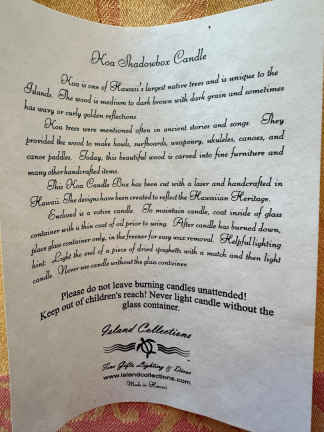 Koa Shadowbox Candle
Koa is one of Hawaii's largest native trees and is unique to the
Islands. The wood is medium to dark brown with dark grain and sometimes
has wavy or curly golden reflections.
Koa trees were mentioned often in ancient stories and songs. They
provided the wood to make bowls, surfboards, weaponry, ukuleles, canoes, and
canoe paddles. Today, this beautiful wood is carved into fine furniture and
many other handcrafted items.
This Koa Candle Box has been cut with a laser and handcrafted in
Hawaii. The designs have been created to reflect the Hawaiian Heritage.
Enclosed is a votive candle. To maintain candle, coat inside of glass
container with a thin coat of oil prior to using. After candle has burned down,
place glass container only, in the freezer for easy wax removal. Helpful lighting
hint: Light the end of a piece of dried spaghetti with a match and then light
candle. Never use candle without the glass container.
Please do not leave burning candles unattended!
Keep out of children's reach! Never light candle without the
glass container.
Island Collections
Fine Gifts, Lighting & Decor
www.islandcollections.com
Made in Hawaii